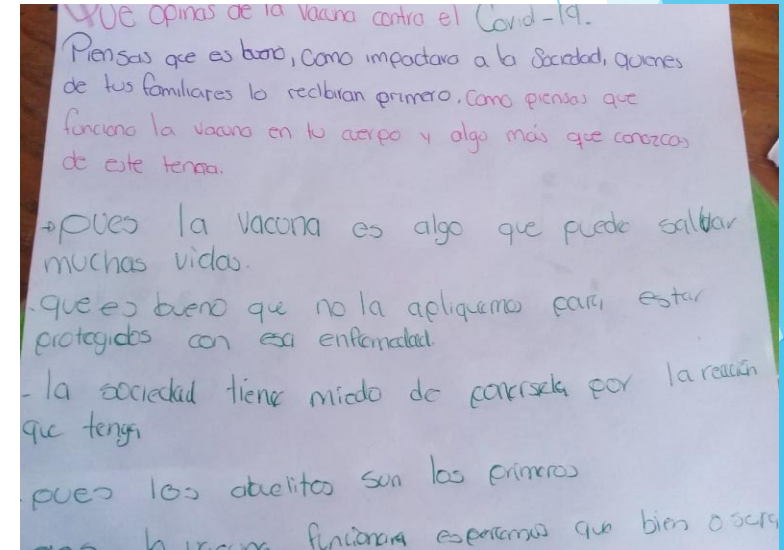 Que opinas de la vacuna contra el Covid-19.
Piensas que es bueno, como impactara a la Sociedad, quienes
de tus familiares lo recibiran primero. Como piensas que
funciona la vacuna en tu cuerpo y algo más que conozcas
de este tema.
→pues la vacuna es algo que puede salvar
muchas vidas.
- que es bueno que no la apliquemos para estar
protegidos con esa enfermedad.
- la sociedad tiene miedo de ponersela por la reacción
que tenga
- pues los abuelitos son los primeros
la vacuna funcionara esperamos que bien o sera